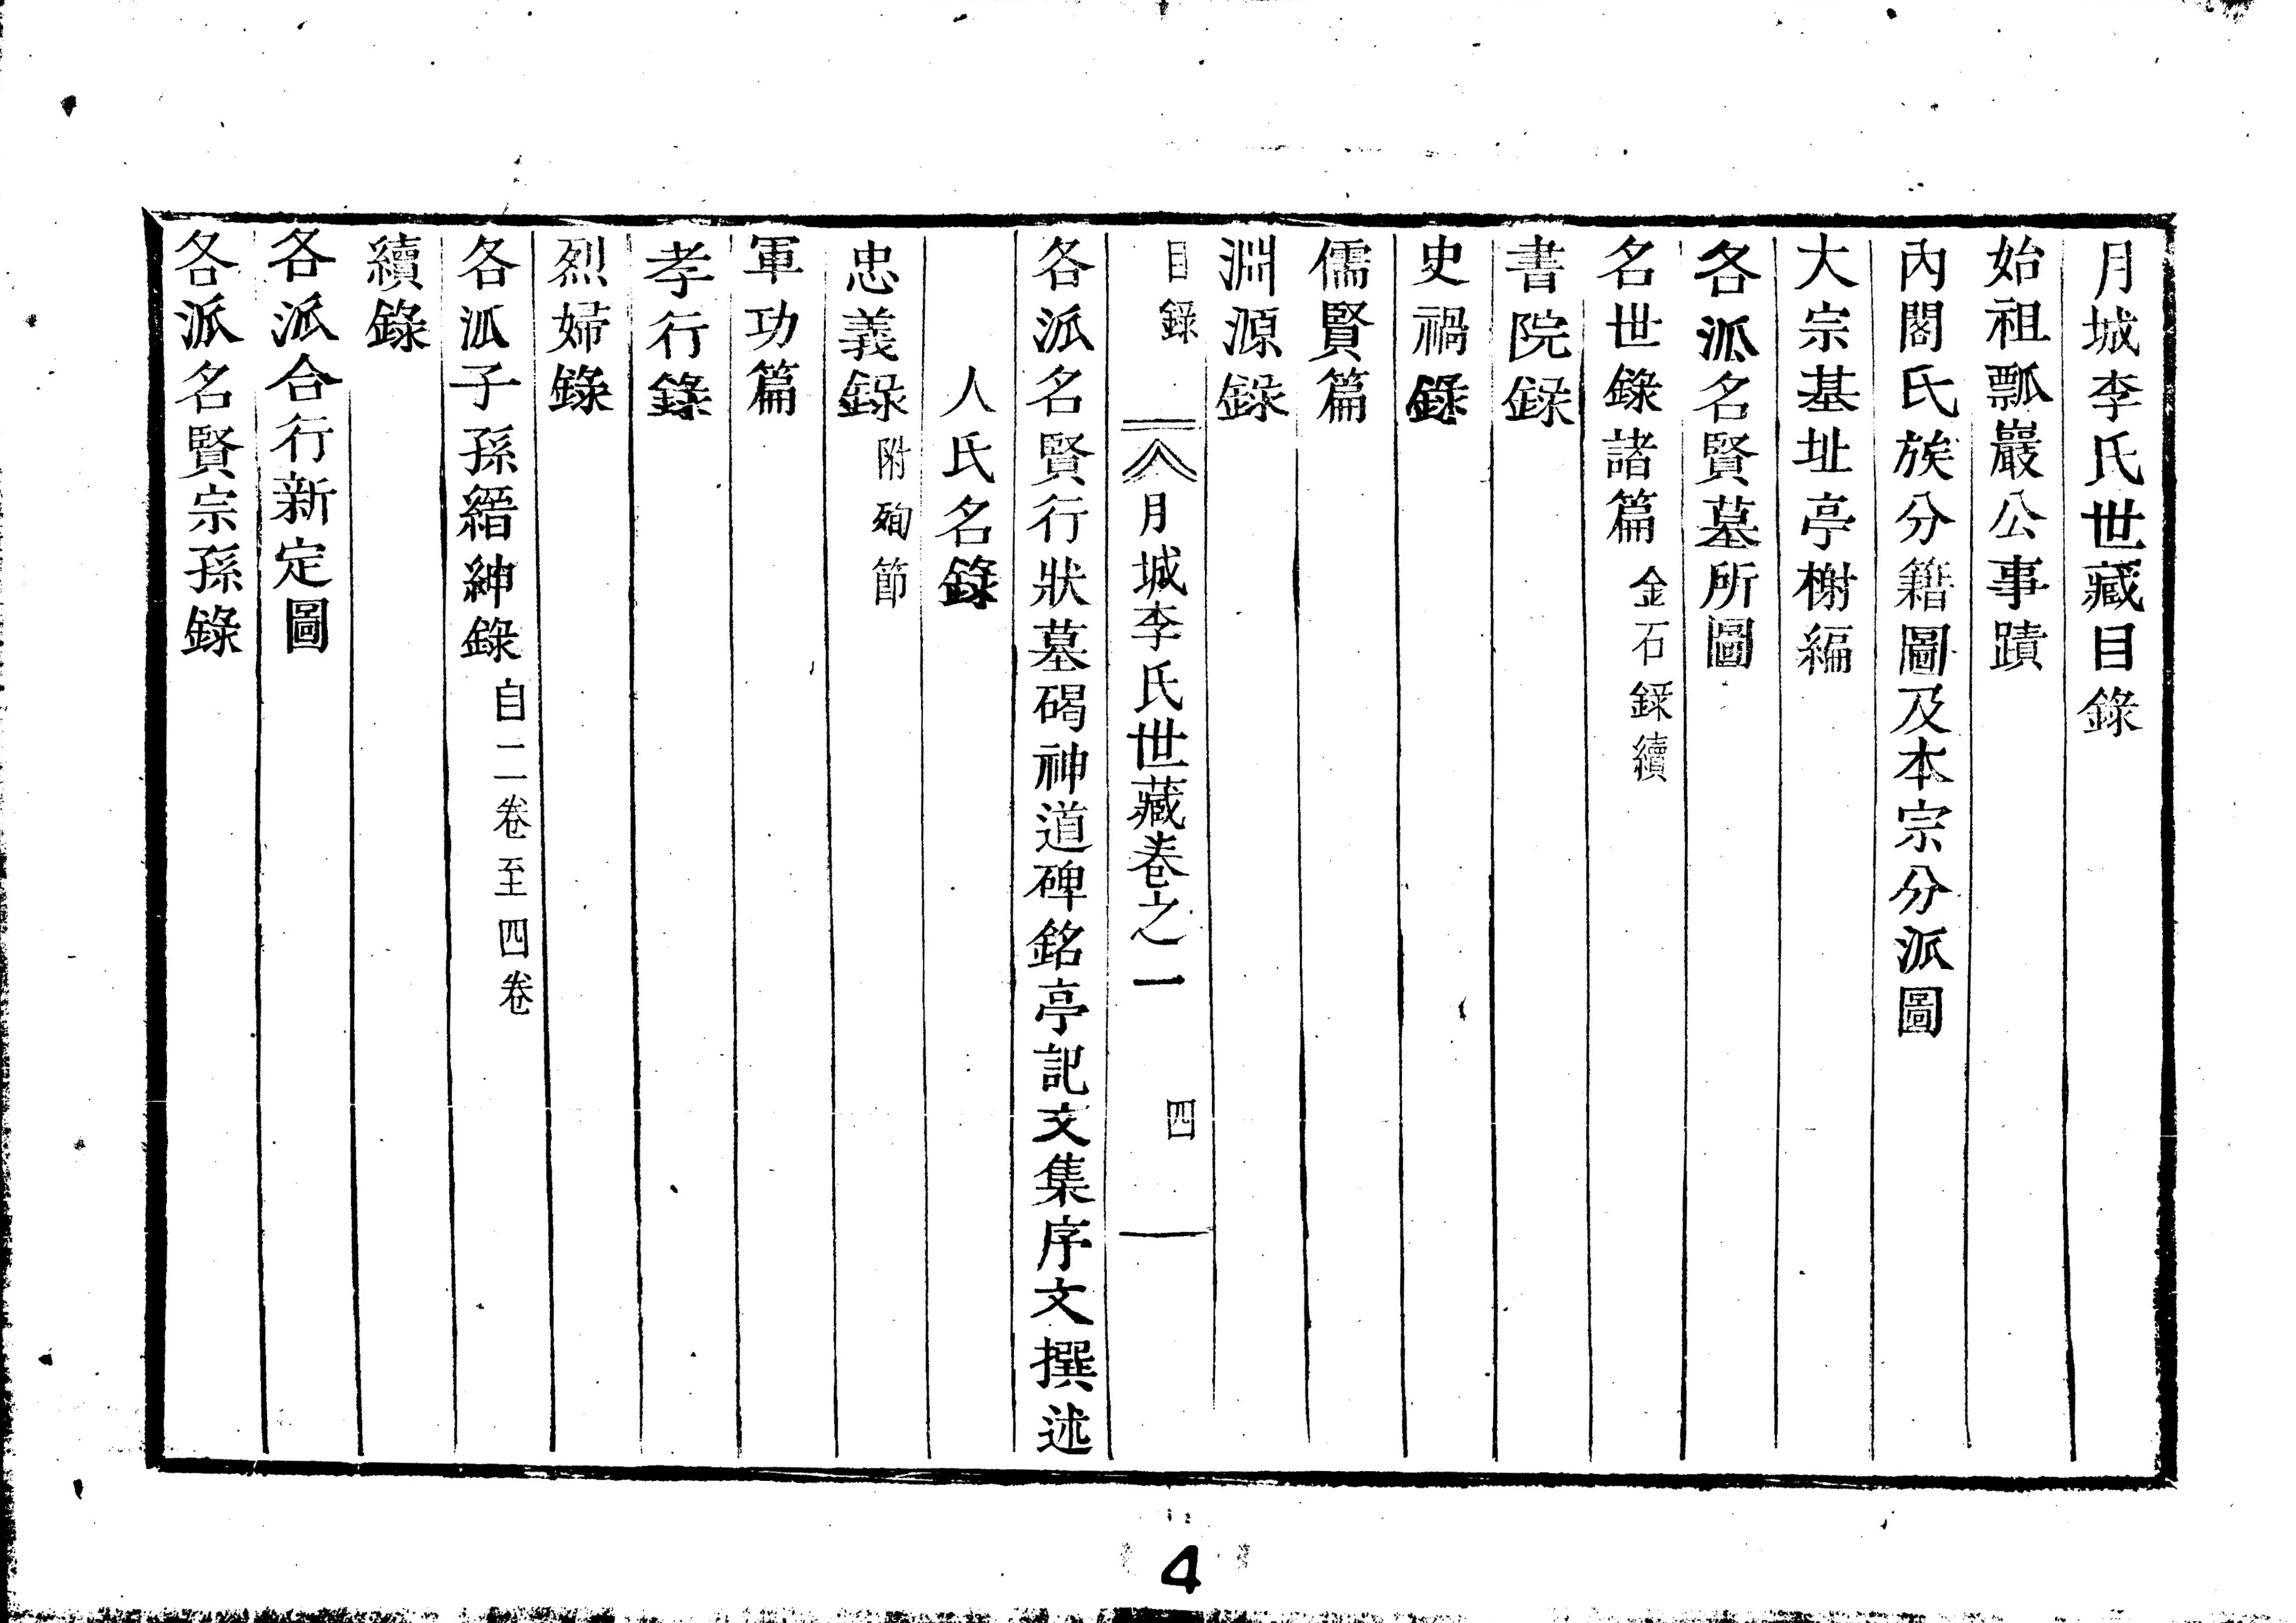 月城李氏世藏目錄
始祖瓢巖公事蹟
內閣氏族分籍圖及本宗分派圖
大宗基址亭榭編
各派名賢墓所圖
名世錄諸篇 金石錄續
書院錄
史禍錄
儒賢篇
淵源錄
目錄 月城李氏世藏卷之一 四
各派名賢行狀墓碣神道碑銘亭記文集序文撰述
人氏名錄
忠義錄 附殉節
軍功篇
孝行錄
烈婦錄
各派子孫縉紳錄 自二卷至四卷
續錄
各派合行新定圖
各派名賢宗孫錄
4